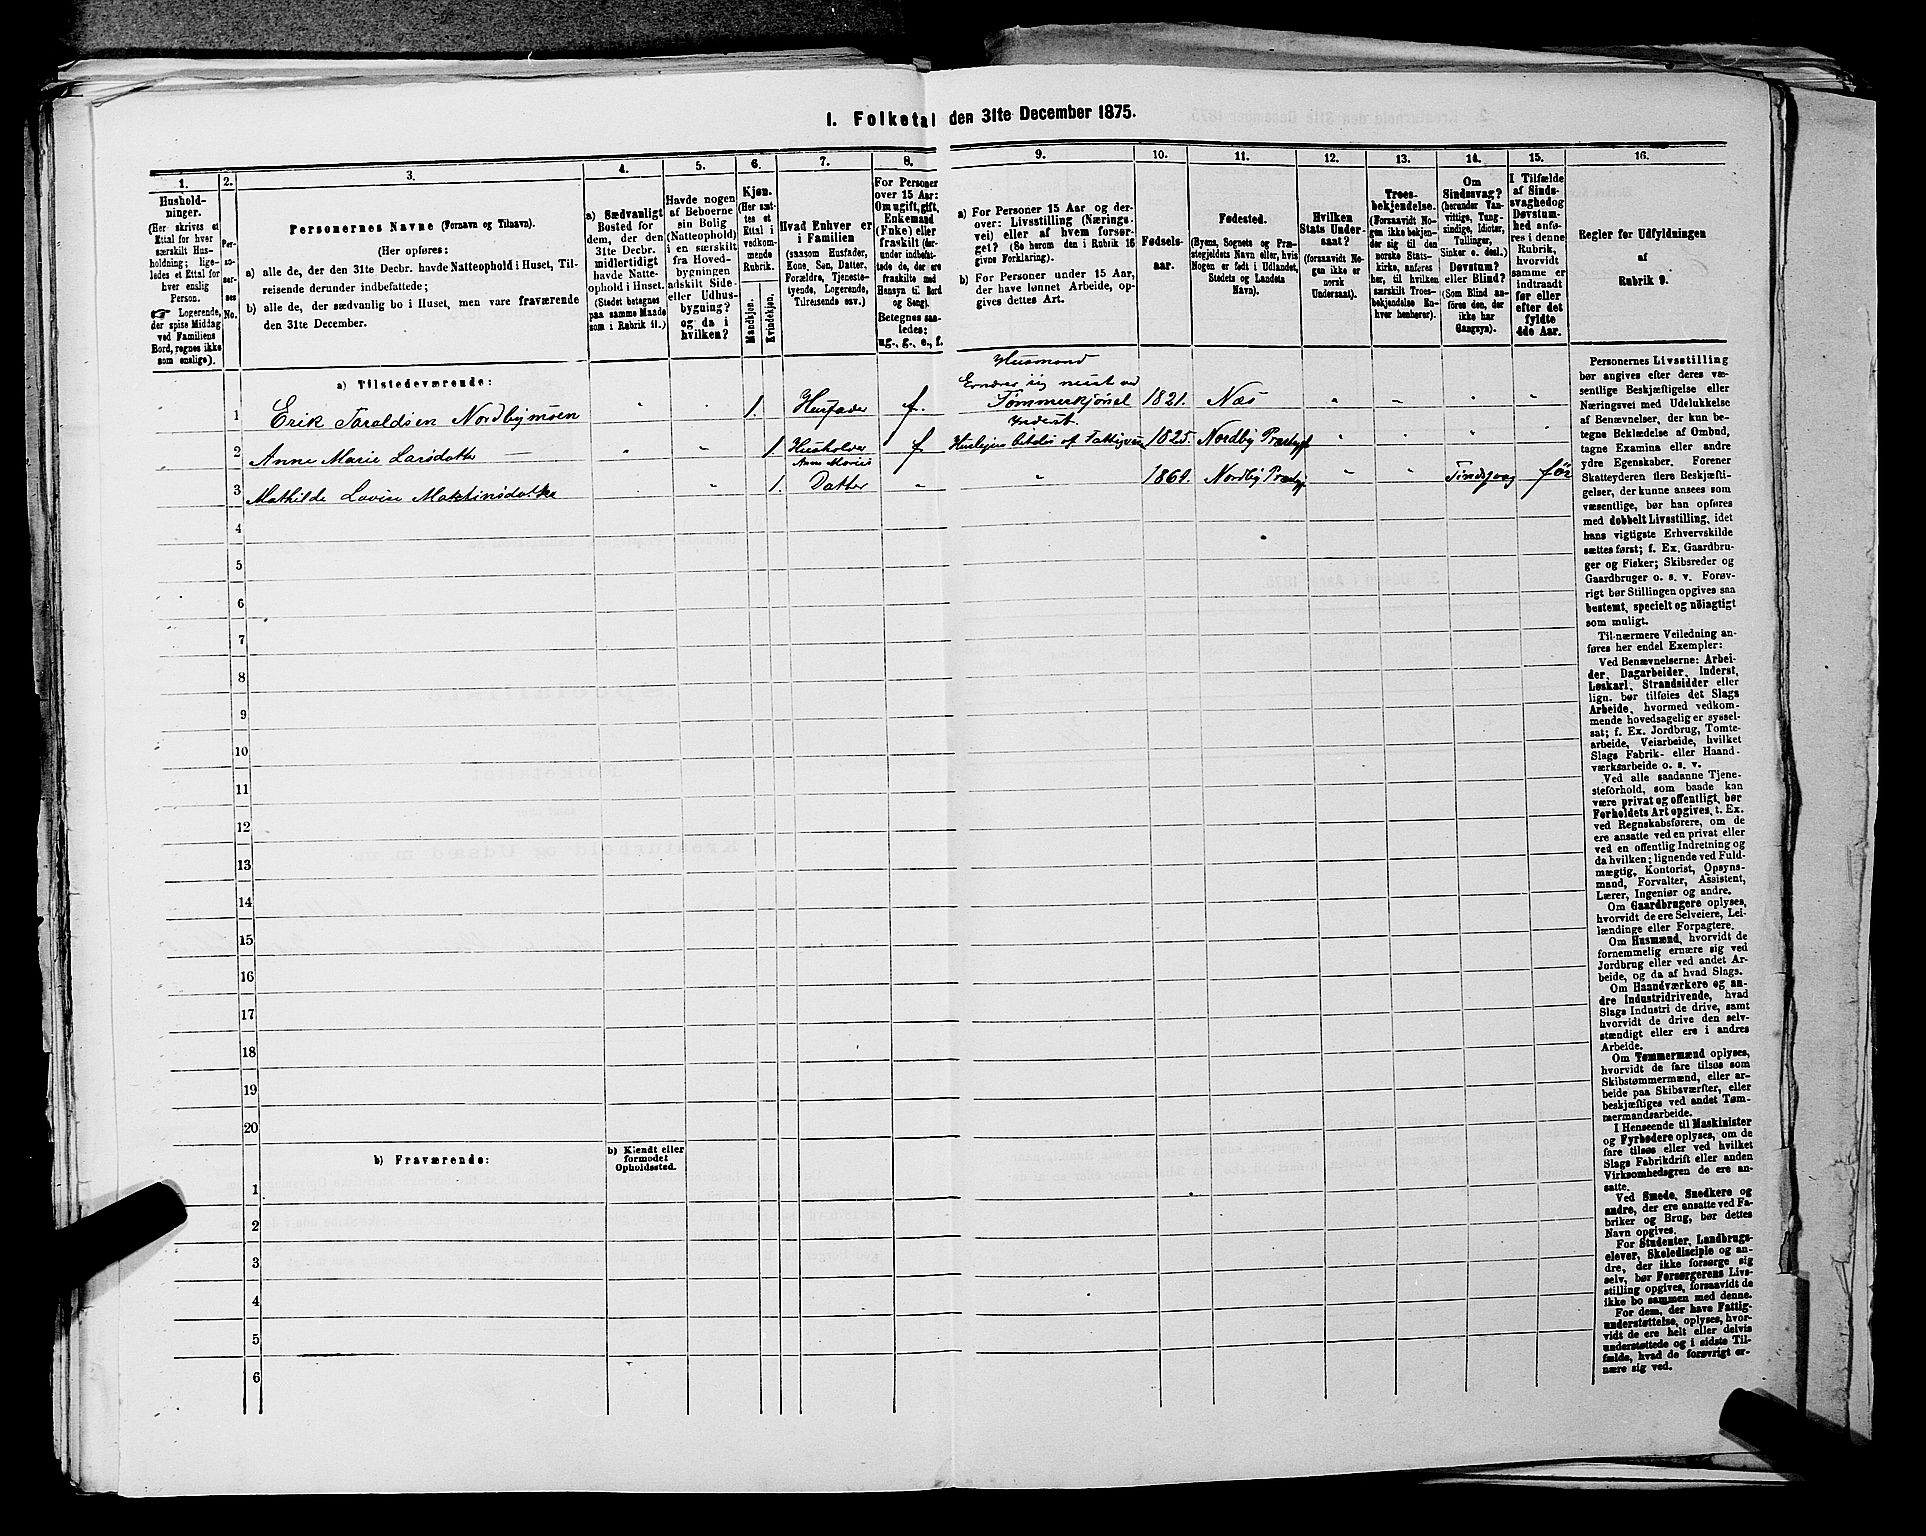 1. Folketal den 31te December 1875.
1.
Hushold-
ninger.
(Her skrives et
Ettal for hver
særskilt Hus-
holdning; lige-
ledes et Ettal for
hver enslig
Person.
☞ Logerende,
der spise Middag
ved Familiens
Bord, regnes ikke
som enslige).
2.
Per-
so-
ner-
nes
No.
3.
Personernes Navne (Fornavn og Tilnavn).
(Her opføres:
a) alle de, der den 31te Decbr. havde Natteophold i Huset, Til-
reisende derunder indbefattede;
b) alle de, der sædvanlig bo i Huset, men vare fraværende
den 31te December.
4.
a) Sædvanligt
Bosted for
dem, der den
31te Decbr.
midlertidigt
havde Natte-
ophold i Huset.
(Stedet betegnes
paa samme Maade
som i Rubrik 11.)
5.
Havde nogen
af Beboerne
sin Bolig
(Natteophold)
i en særskilt
fra Hoved-
bygningen
adskilt Side-
eller Udhus-
bygning?
og da i
hvilken?
6.
Kjøn.
(Her sæt-
tes et
Ettal i
vedkom-
mende
Rubrik.
Mandkjøn.
Kvindekjøn.
7.
Hvad Enhver er
i Familien
(saasom Husfader,
Kone, Søn, Datter,
Forældre, Tjeneste-
tyende, Logerende,
Tilreisende osv.)
8.
For Personer
over 15 Aar:
Om ugift, gift,
Enkemand
(Enke) eller
fraskilt (her-
under indbefat-
tede de, der ere
fraskilte med
Hensyn til Bord
og Seng).
Betegnes saa-
ledes:
ug., g., e., f.
9.
a) For Personer 15 Aar og der-
over: Livsstilling (Nærings-
vei) eller af hvem forsør-
get? (Se herom den i Rubrik 16
givne Forklaring).
b) For Personer under 15 Aar,
der have lønnet Arbeide, op-
gives dettes Art.
10.
Fødsels-
aar.
11.
Fødested.
(Byens, Sognets og Præ-
stegjeldets Navn eller, hvis
Nogen er født i Udlandet,
Stedets og Landets
Navn).
12.
Hvilken
Stats Under-
saat?
(forsaavidt No-
gen ikke er
norsk
Undersaat).
13.
Troes-
bekjendelse.
(Forsaavidt No-
gen ikke bekjen-
der sig til den
norske Stats-
kirke, anføres
her, til hvilken
særskilt Troes-
bekjendelse En-
hver henhører).
14.
Om
Sindssvag?
(herunder Van-
vittige, Tung-
sindige, Idioter,
Tullinger,
Sinker o. desl.).
Døvstum?
eller Blind?
(Som Blind an-
føres den, der
ikke har
Gangsyn).
15.
I Tilfælde
af Sinds-
svaghed og
Døvstum-
hed anfø-
res i denne
Rubrik,
hvorvidt
samme er
indtraadt
før eller
efter det
fyldte
4de Aar.
16.
Regler for Udfyldningen
af
Rubrik 9.
a) Tilstedeværende:
1 Erik Taraldsen Nordbymoen " " 1. Husfader f. Husmand Ernærer sig mest ved Tømmerkjørsel 1821. Næs " " " "
2 Anne Marie Larsdatter " " 1. Husholder f Inderst 1825. Nordby Præstegj " " " "
3 Mathilde Lovise Martinsdatter " 1. Anne Maries Datter " " 1869. Nordby Præstegj " " Sindsvag før
4
5
6
7
8
9
10
11
12
13
14
15
16
17
18
19
20
b) Fraværende:
b) Kjendt eller
formodet
Opholdssted.
1
2
3
4
5
6
Personernes Livsstilling
bør angives efter deres væ-
sentlige Beskjæftigelse eller
Næringsvei med Udelukkelse
af Benævnelser, der kun be-
tegne Beklædelse af Ombud,
tagne Examina eller andre
ydre Egenskaber. Forener
Skatteyderen flere Beskjæfti-
gelser, der kunne ansees som
væsentlige, bør han opføres
med dobbelt Livsstilling, idet
hans vigtigste Erhvervskilde
sættes først; f. Ex. Gaardbru-
ger og Fisker; Skibsreder og
Gaardbruger o. s. v. Forøv-
rigt bør Stillingen opgives saa
bestemt, specielt og nøiagtigt
som muligt.
Til nærmere Veiledning an-
føres her endel Exempler:
Ved Benævnelserne: Arbei-
der, Dagarbeider, Inderst,
Løskarl, Strandsidder eller
lign. bør tilføies det Slags
Arbeide, hvormed vedkom-
mende hovedsagelig er syssel-
sat; f. Ex. Jordbrug, Tomte-
arbeide, Veiarbeide, hvilket
Slags Fabrik- eller Haand-
værksarbeide o. s. v.
Ved alle saadanne Tjene-
steforhold, som baade kan
være privat og offentligt, bør
Forholdets Art opgives, t. Ex.
ved Regnskabsførere, om de
ere ansatte ved en privat eller
ved en offentlig Indretning og
da hvilken; lignende ved Fuld-
mægtig, Kontorist, Opsyns-
mand, Forvalter, Assistent,
Lærer, Ingeniør og andre.
Om Gaardbrugere oplyses,
hvorvidt de ere Selveiere, Lei-
lændinge eller Forpagtere.
Om Husmænd, hvorvidt de
fornemmelig ernære sig ved
Jordbrug eller ved andet Ar-
beide, og da af hvad Slags.
Om Haandværkere og an-
dre Industridrivende, hvad
Slags Industri de drive, samt
hvorvidt de drive den selv-
stændigt eller ere i andres
Arbeide.
Om Tømmermænd oplyses,
hvorvidt de fare tilsøs som
Skibstømmermænd, eller ar-
beide paa Skibsværfter, eller
beskjæftiges ved andet Tøm-
mermandsarbeide.
I Henseende til Maskinister
og Fyrbødere oplyses, om de
fare tilsøs eller ved hvilket
Slags Fabrikdrift eller anden
Virksomhedsgren de ere an-
satte.
Ved Smede, Snedkere og
andre, der ere ansatte ved Fa-
briker og Brug, bør dettes
Navn opgives.
For Studenter, Landbrugs-
elever, Skoledisciple og an-
dre, der ikke forsørge sig
selv, bør Forsørgerens Livs-
stilling opgives, forsaavidt de
ikke bo sammen med denne.
For dem, der have Fattig-
understøttelse, oplyses, hvor-
vidt de ere helt eller delvis
understøttede og i sidste Til-
fælde, hvad de forøvrigt er-
nære sig ved.